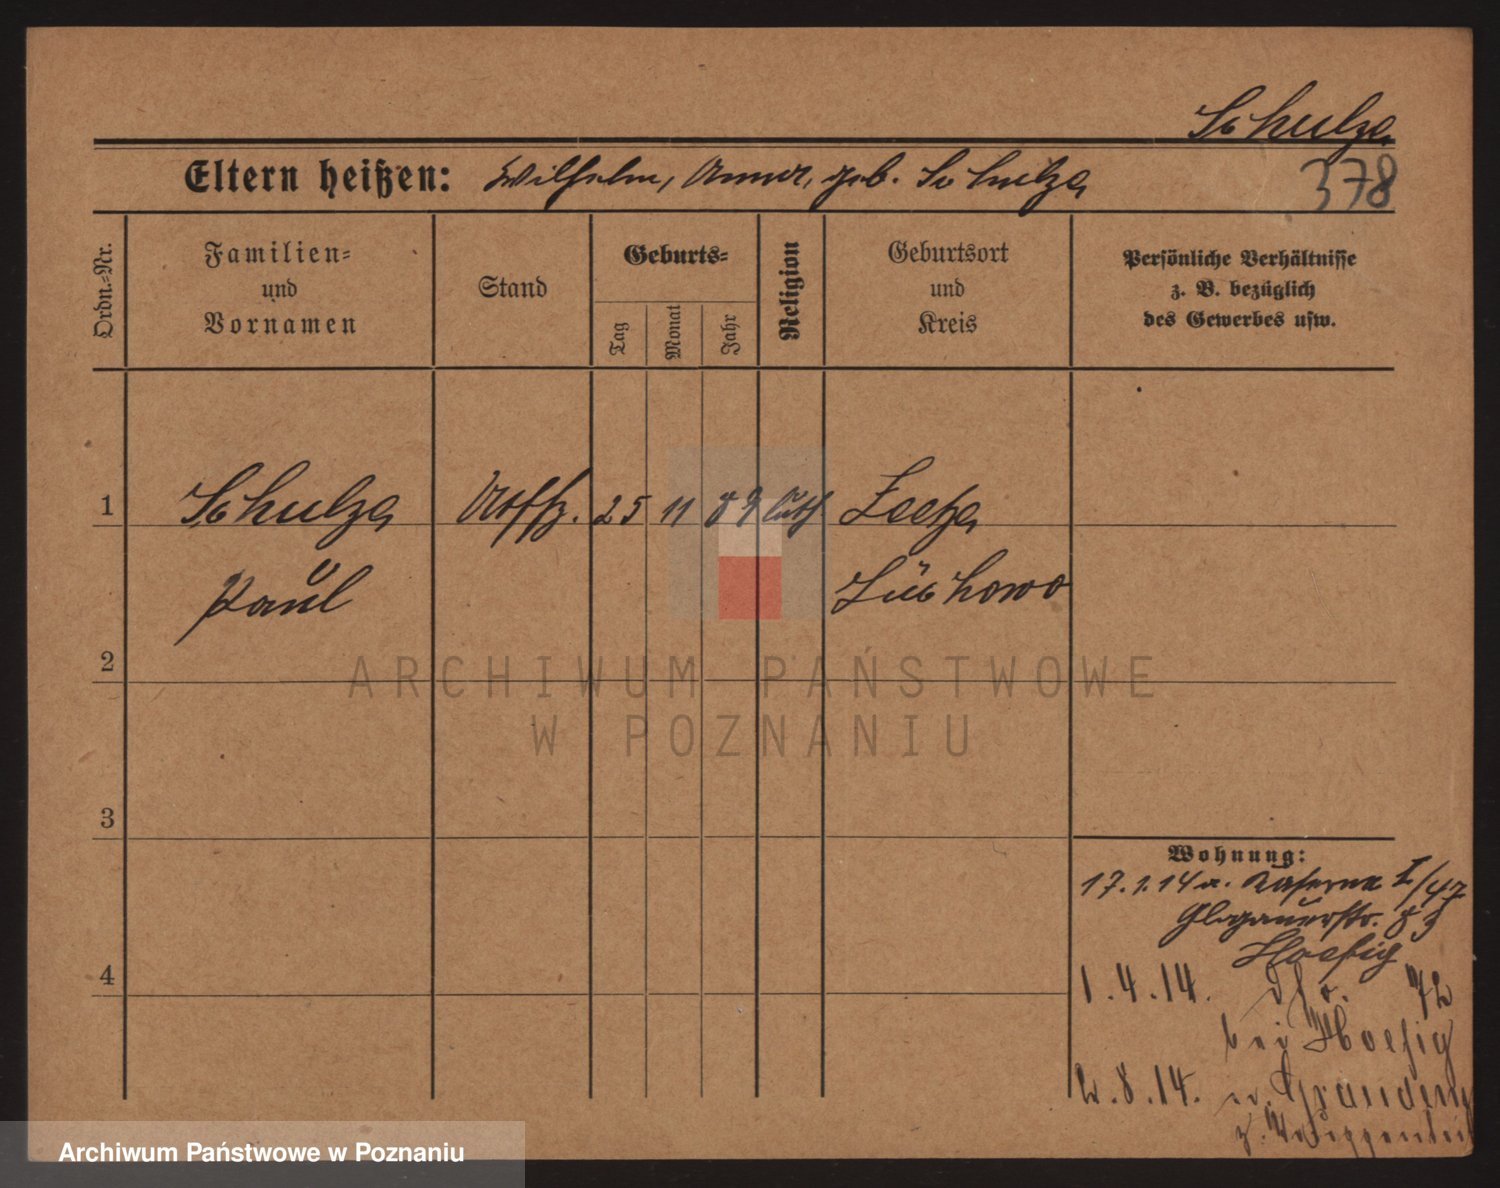 Schulze
Eltern heißen: Wilhelm, Anna, geb. Schulze
378
Ordn.-Nr.
Familien-
und
Vornamen
Stand
Geburts-
Tag
Monat
Jahr
Religion
Geburtsort
und
Kreis
Persönliche Verhältnisse
z. B. bezüglich
des Gewerbes usw.
1 Schulze Utffz. 25 11 89 luth Zeetze
Paul Lüchow
2
3
4
Wohnung:
17.1.14 a. Kaserne I/47
Glogauerstr. 83
Hoefig
1.4.14. 72
bei Hoefig
2.8.14. Graudenz
z. Truppenteil
ARCHIWUM PAŃSTWOWE
W POZNANIU
Archiwum Państwowe w Poznaniu